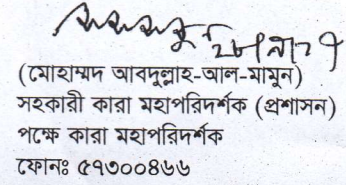 (মোহাম্মদ আবদুল্লাহ-আল-মামুন)
সহকারী কারা মহাপরিদর্শক (প্রশাসন)
পক্ষে কারা মহাপরিদর্শক
ফোনঃ ৫৭৩০০৪৬৬